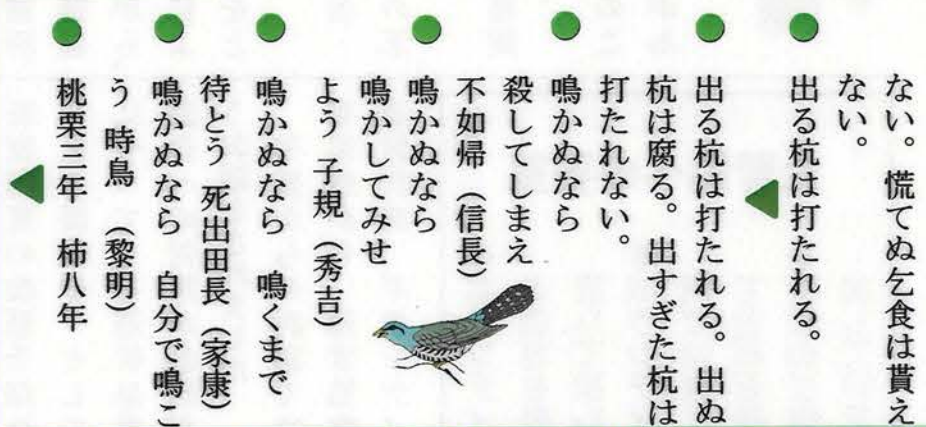 ない。慌てぬ乞食は貰え
ない。
出る杭は打たれる。
出る杭は打たれる。出ぬ
杭は腐る。出すぎた杭は
打たれない。
鳴かぬなら
殺してしまえ
不如帰（信長）
鳴かぬなら
鳴かしてみせ
よう 子規（秀吉）
鳴かぬなら 鳴くまで
待とう 死出田長（家康）
鳴かぬなら 自分で鳴こ
う 時鳥（黎明）
桃栗三年 柿八年